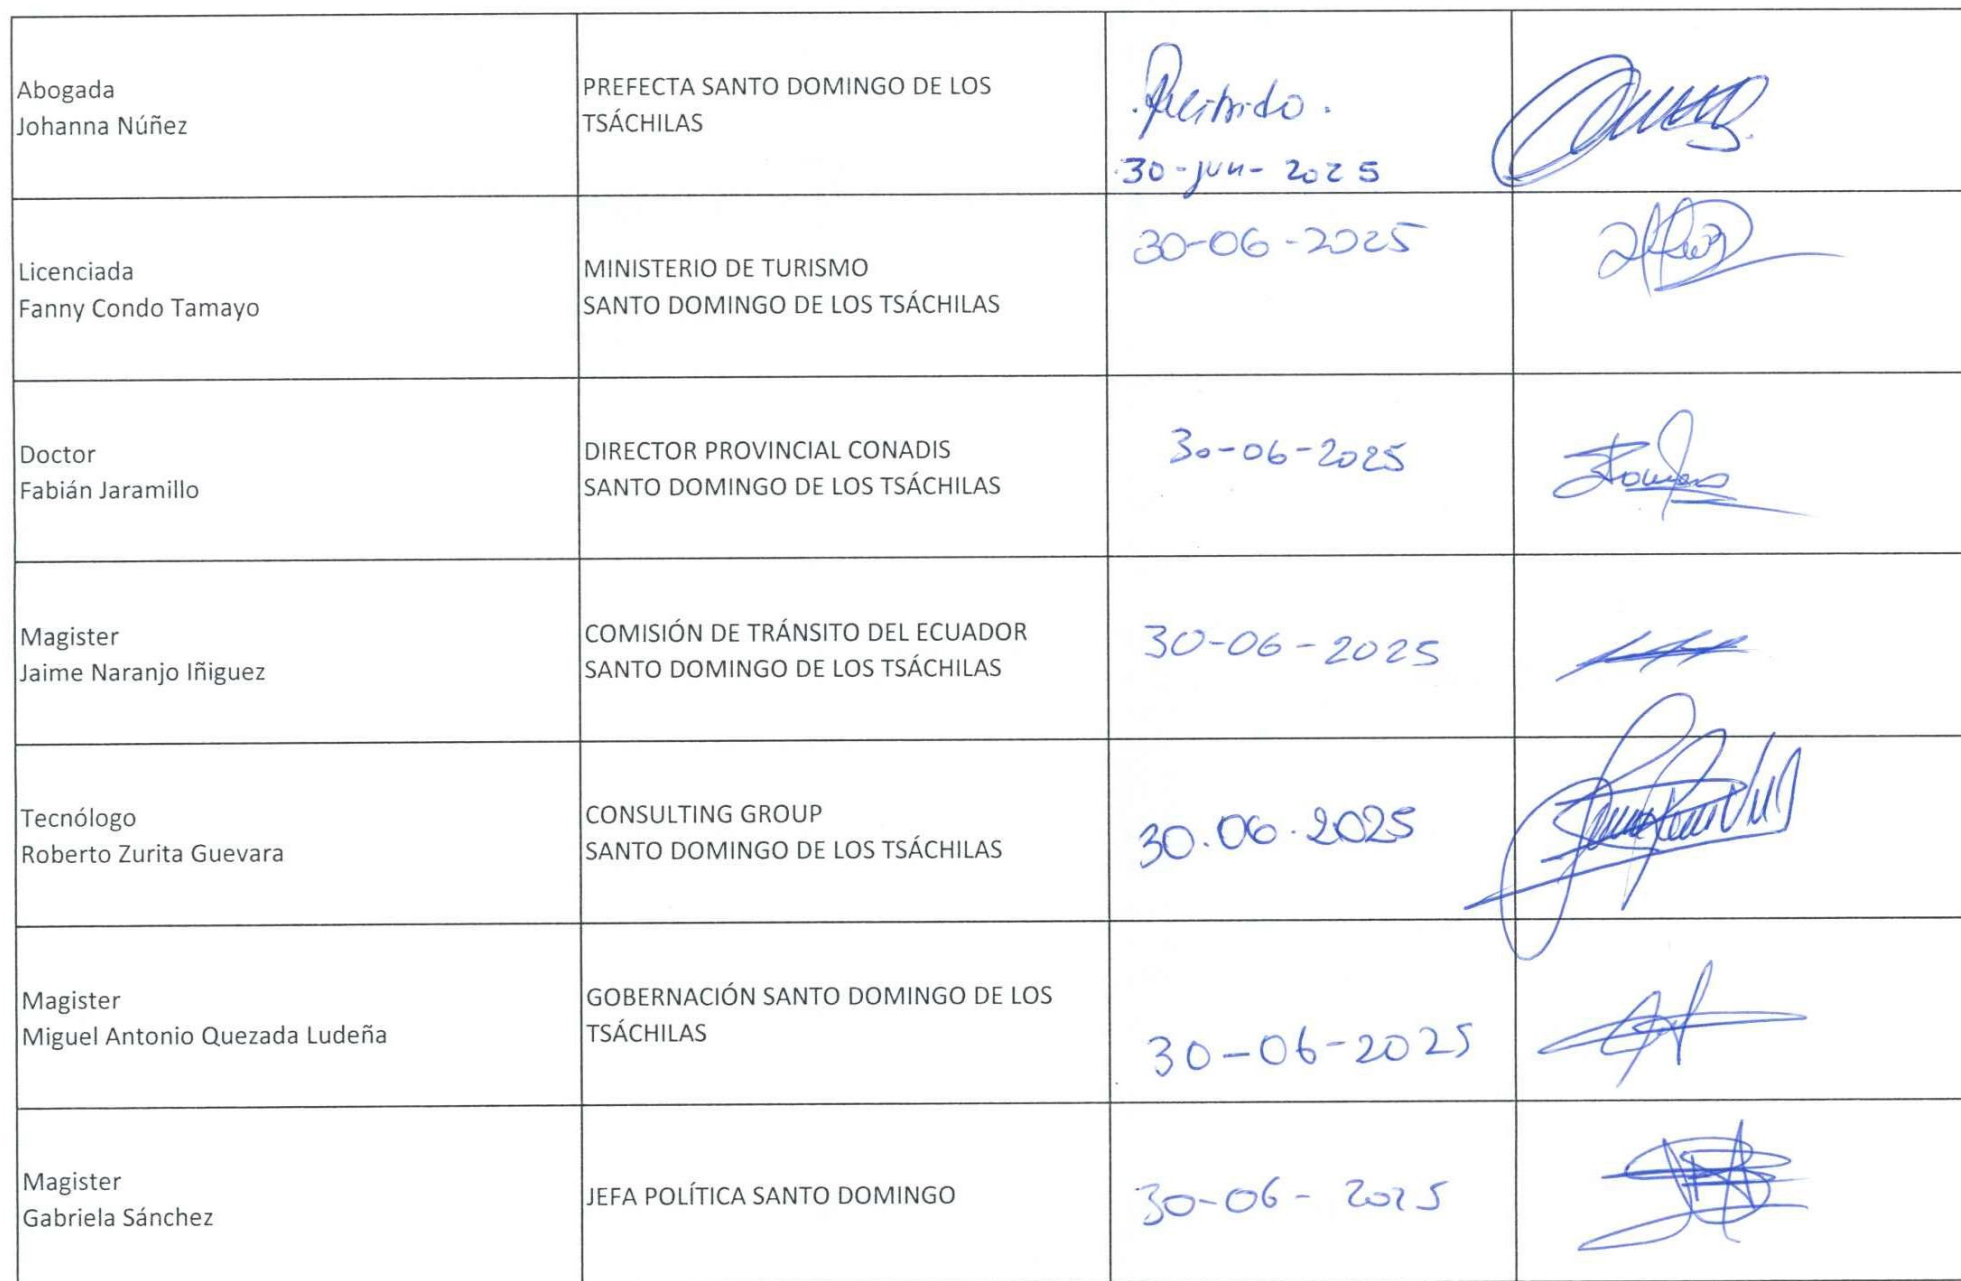 Abogada
Johanna Núñez
PREFECTA SANTO DOMINGO DE LOS
TSÁCHILAS
Recibido.
30-jun-2025
Licenciada
Fanny Condo Tamayo
MINISTERIO DE TURISMO
SANTO DOMINGO DE LOS TSÁCHILAS
30-06-2025
Doctor
Fabián Jaramillo
DIRECTOR PROVINCIAL CONADIS
SANTO DOMINGO DE LOS TSÁCHILAS
30-06-2025
Magister
Jaime Naranjo Iñiguez
COMISIÓN DE TRÁNSITO DEL ECUADOR
SANTO DOMINGO DE LOS TSÁCHILAS
30-06-2025
Tecnólogo
Roberto Zurita Guevara
CONSULTING GROUP
SANTO DOMINGO DE LOS TSÁCHILAS
30.06.2025
Magister
Miguel Antonio Quezada Ludeña
GOBERNACIÓN SANTO DOMINGO DE LOS
TSÁCHILAS
30-06-2025
Magister
Gabriela Sánchez
JEFA POLÍTICA SANTO DOMINGO
30-06-2025